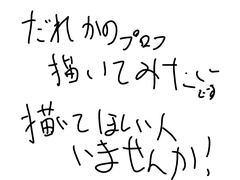 だれかのプロフ
描いてみたいです
描いてほしい人
いませんか!